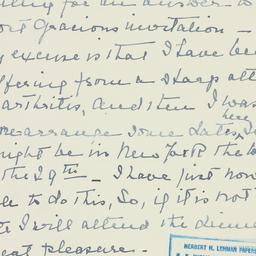 for an answer to
ost Gracious invitation —
y excuse is that I have be
ffering from a sharp att
arthritis, and then I was
here
re-arrange some dates, so
ight be in New York the
the 29th — I have just now
le to do this, So, if it is not
I will attend the dinne
eat pleasure —
HERBERT H. LEHMAN PAPERS